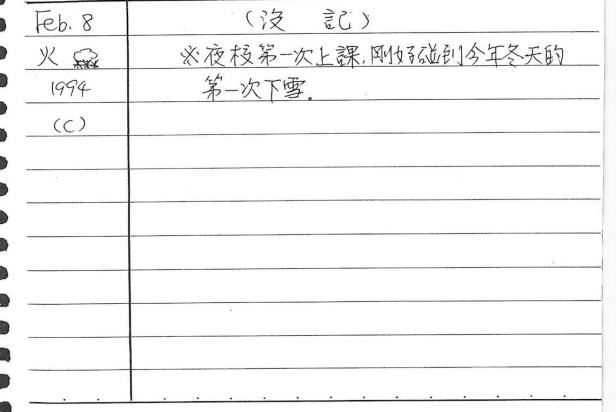 Feb. 8 (沒 記)
火 ※夜校第一次上課,剛好碰到今年冬天的
1994 第一次下雪.
(C)